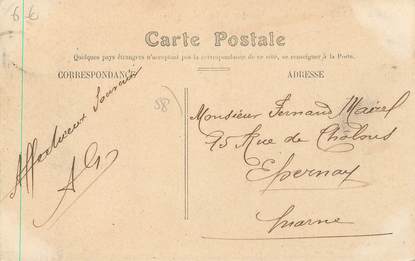 6€
Carte Postale
Quelques pays étrangers n'acceptant pas la correspondance de ce côté, se renseigner à la Poste.
CORRESPONDANCE
ADRESSE
58
Affectueux Souvenir
AG
Monsieur Fernand
95 Rue de Châlons
Epernay
Marne